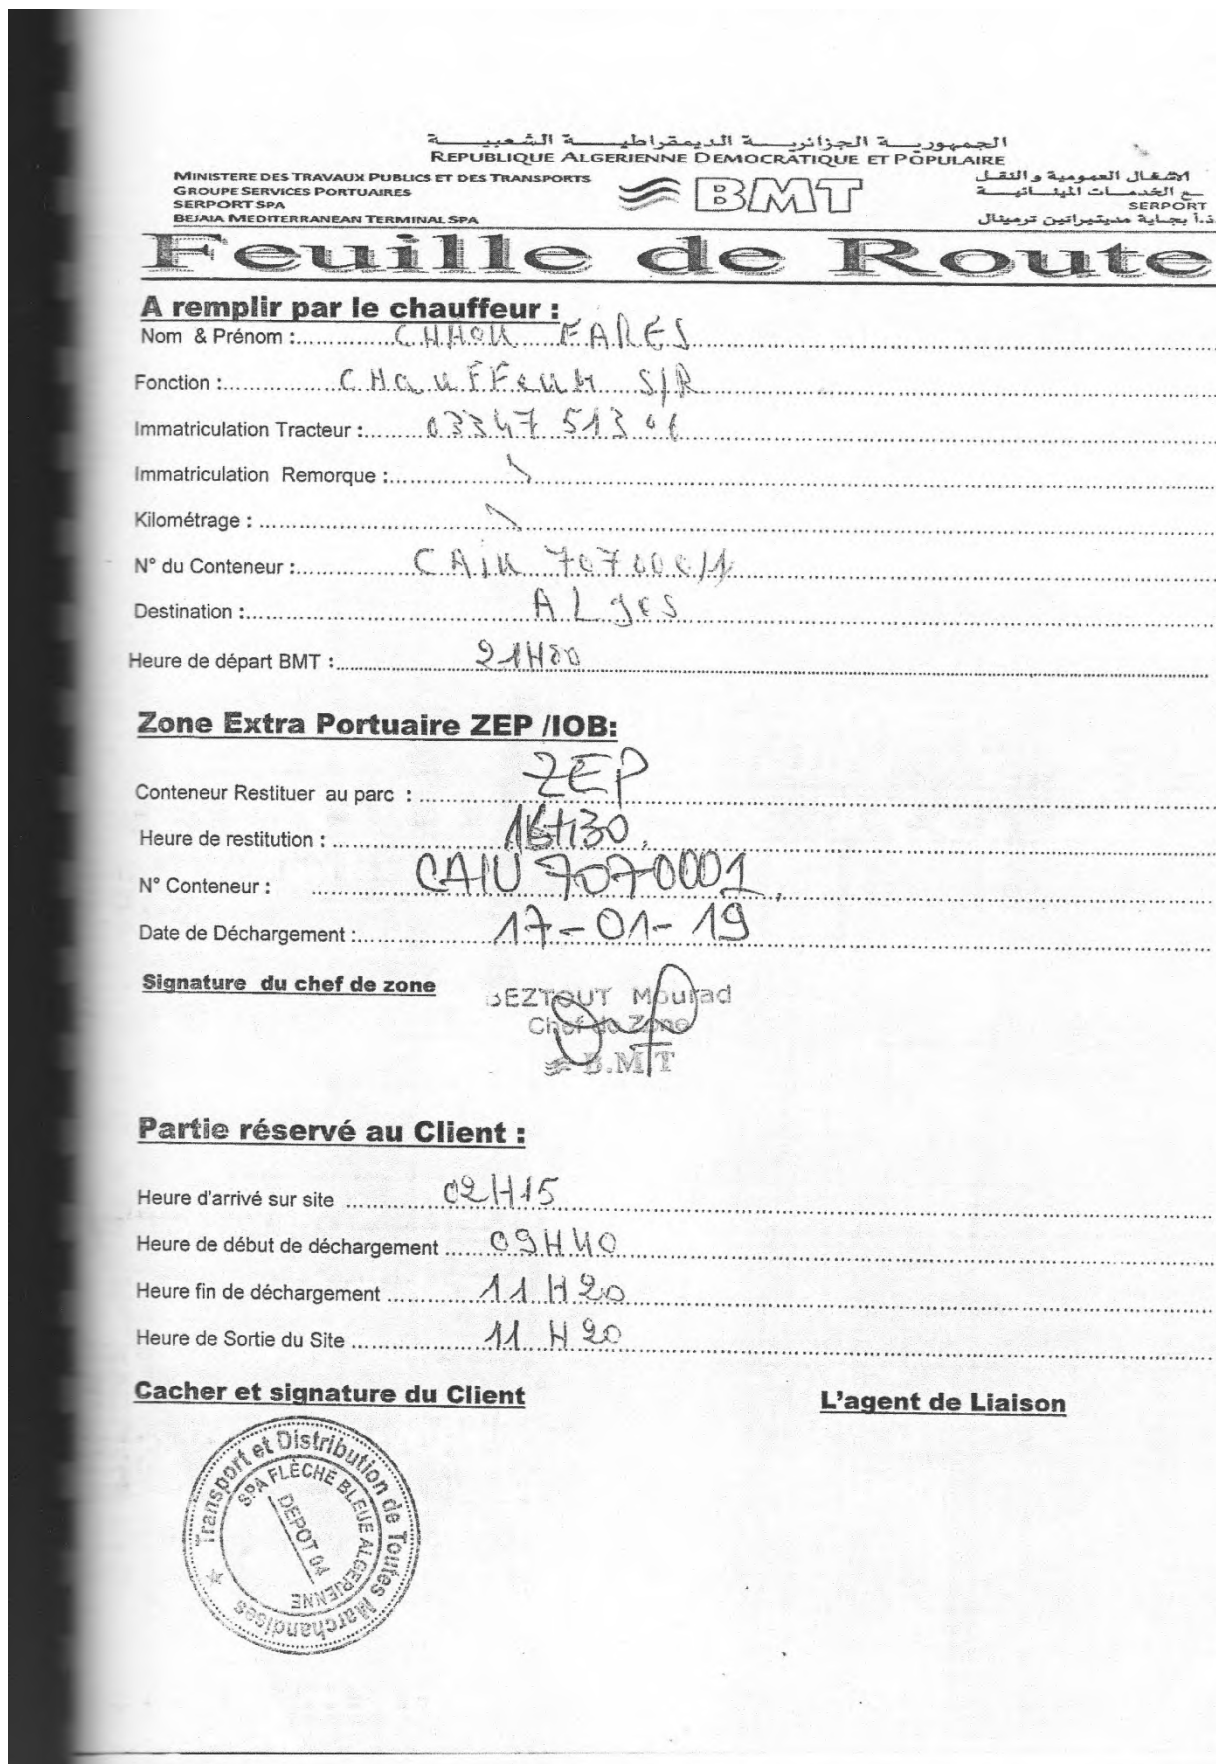 الجمهوريـــــة الجزائريـــة الديمقراطيـــــة الشعبيـــــة
REPUBLIQUE ALGERIENNE DEMOCRATIQUE ET POPULAIRE
MINISTERE DES TRAVAUX PUBLICS ET DES TRANSPORTS
GROUPE SERVICES PORTUAIRES
SERPORT SPA
BEJAIA MEDITERRANEAN TERMINAL SPA
BMT
الاشغال العمومية و النقل
ـع الخدمــات المينــائيــة
SERPORT
ذ.أ بجاية مديتيرانين ترمينال
Feuille de Route
A remplir par le chauffeur :
Nom & Prénom : FARES
Fonction : CHauFFeur S/R
Immatriculation Tracteur : 03347 513 06
Immatriculation Remorque : \
Kilométrage : \
N° du Conteneur : CAiu 707000/1
Destination : ALger
Heure de départ BMT : 21H00
Zone Extra Portuaire ZEP /IOB:
Conteneur Restituer au parc : ZEP
Heure de restitution : 16H30
N° Conteneur : CAIU 7070001
Date de Déchargement : 17-01-19
Signature du chef de zone
BEZTOUT Mourad
Chef de Zone
B.M.T
Partie réservé au Client :
Heure d'arrivé sur site 02H15
Heure de début de déchargement 09H40
Heure fin de déchargement 11H20
Heure de Sortie du Site 11H20
Cacher et signature du Client
L'agent de Liaison
Transport et Distribution de Toutes Marchandises
SPA FLÈCHE BLEUE ALGERIENNE
DEPOT 04